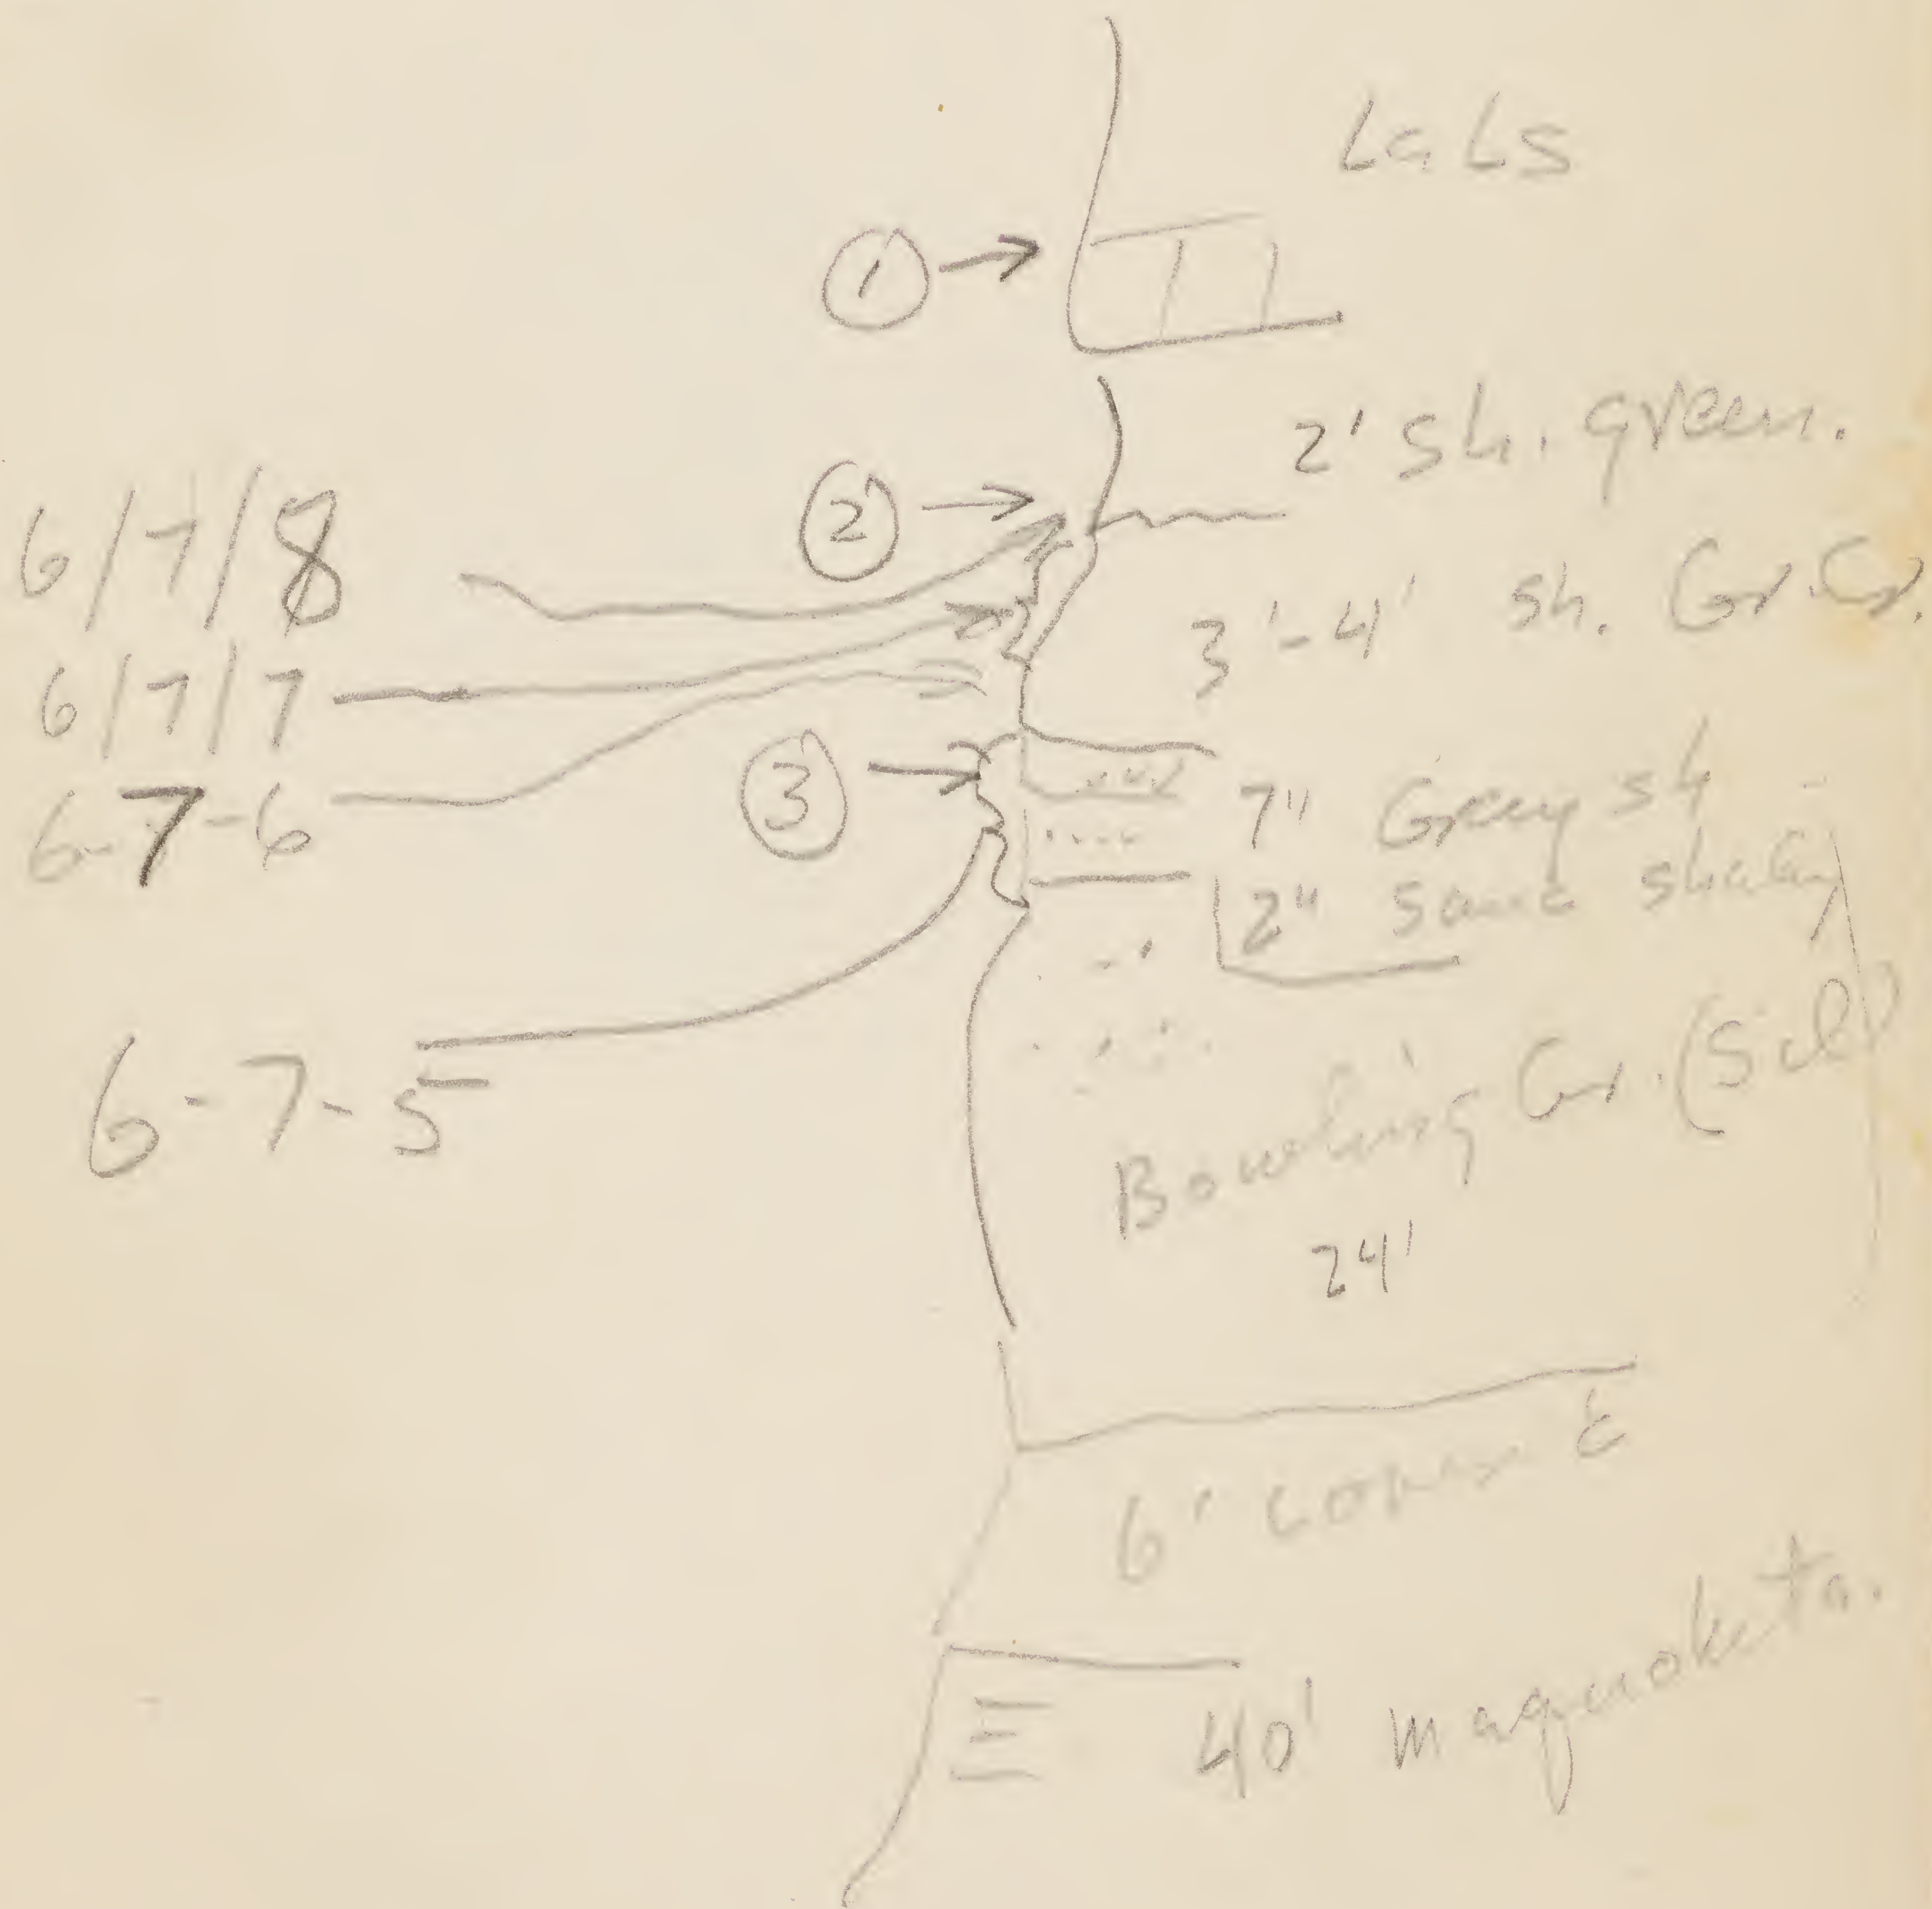 La Ls
①
2' sh. green.
②
6/7/8
3'-4' sh. Gr. Gr.
6/7/7
③
6-7-6
7" Grey sh
2" same shaley
6-7-5
Bowling Gr. (Sil)
24'
6' cover
40' maquoketa.